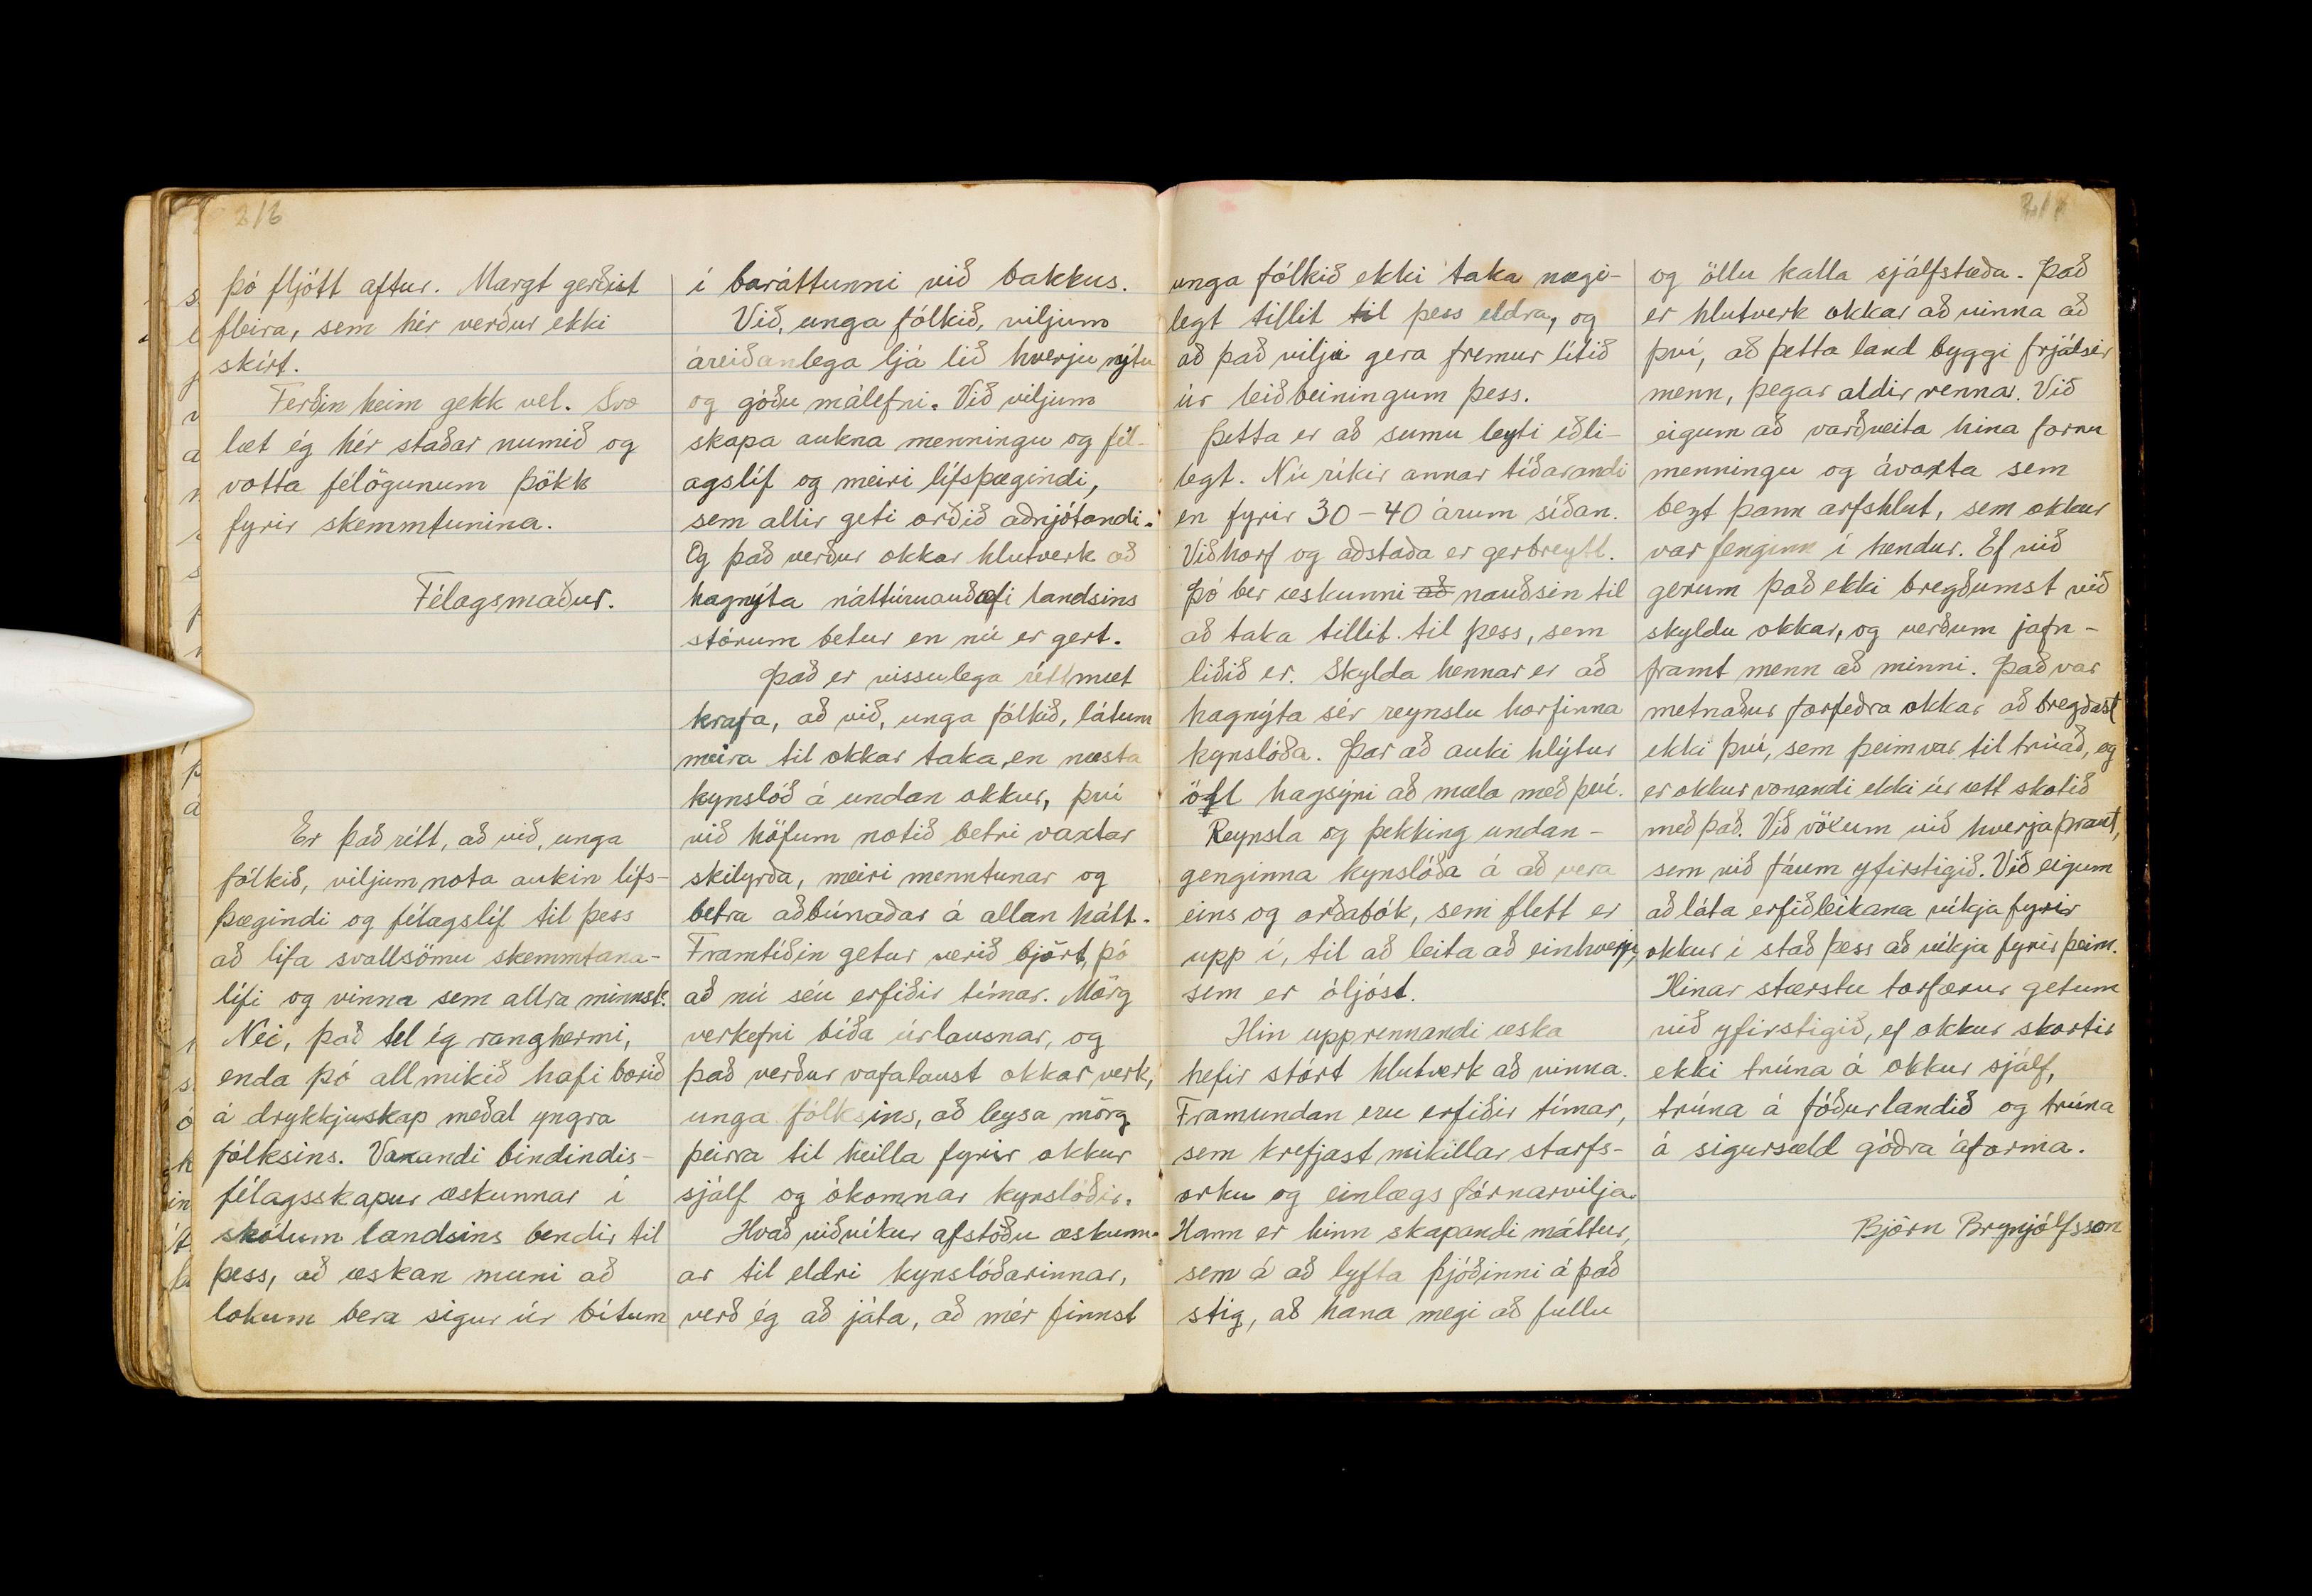 216
þó fljótt aftur. Margt gerðist
fleira, sem hér verður ekki
skírt.
Ferðin heim gekk vel. Svo
læt ég hér staðar numið og
votta félögunum þökk
fyrir skemmtunina.
Félagsmaður.
Er það rétt, að við, unga
fólkið, viljum nota aukin lífs-
þægindi og félagslíf til þess
að lifa svallsömu skemmtana-
lífi og vinna sem allra minnst?
Nei, það tel ég ranghermi,
enda þó allmikið hafi borið
á drykkjuskap meðal yngra
fólksins. Vaxandi bindindis-
félagsskapur æskunnar í
skólum landsins bendir til
þess, að æskan muni að
lokum bera sigur úr bítum
í baráttunni við bakkus.
Við, unga fólkið, viljum
áreiðanlega ljá lið hverju nýtu
og góðu málefni. Við viljum
skapa aukna menningu og fél-
agslíf og meiri lífsþægindi,
sem allir geti orðið aðnjótandi.
Og það verður okkar hlutverk að
hagnýta náttúruauðæfi landsins
stórum betur en nú er gert.
Það er vissulega réttmæt
krafa, að við, unga fólkið, látum
meira til okkar taka, en næsta
kynslóð á undan okkur, því
við höfum notið betri vaxtar
skilyrða, meiri menntunar og
betra aðbúnaðar á allan hátt.
Framtíðin getur verið björt, þó
að nú séu erfiðir tímar. Mörg
verkefni bíða úrlausnar, og
það verður vafalaust okkar verk,
unga fólksins, að leysa mörg
þeirra til heilla fyrir okkur
sjálf og ókomnar kynslóðir.
Hvað viðvíkur afstöðu æskunn-
ar til eldri kynslóðarinnar,
verð ég að játa, að mér finnst
unga fólkið ekki taka nægi-
legt tillit til þess eldra, og
að það vilji gera fremur lítið
úr leiðbeiningum þess.
Þetta er að sumu leyti eðli-
legt. Nú ríkir annar tíðarandi
en fyrir 30-40 árum síðan.
Viðhorf og aðstaða er gerbreytt.
Þó ber æskunni að nauðsin til
að taka tillit til þess, sem
liðið er. Skylda hennar er að
hagnýta sér reynslu horfinna
kynslóða. Þar að auki hlýtur
öfl hagsýni að mæla með því.
Reynsla og þekking undan-
genginna kynslóða á að vera
eins og orðabók, sem flett er
upp í, til að leita að einhverju,
sem er óljóst.
Hin upprennandi æska
hefir stórt hlutverk að vinna.
Framundan eru erfiðir tímar,
sem krefjast mikillar starfs-
orku og einlægs fórnarvilja.
Hann er hinn skapandi máttur,
sem á að lyfta þjóðinni á það
stig, að hana megi að fullu
og öllu kalla sjálfstæða. Það
er hlutverk okkar að vinna að
því, að þetta land byggi frjálsir
menn, þegar aldir renna. Við
eigum að varðveita hina fornu
menningu og ávaxta sem
bezt þann arfshlut, sem okkur
var fenginn í hendur. Ef við
gerum það ekki bregðumst við
skyldu okkar, og verðum jafn-
framt menn að minni. Það var
metnaður forfeðra okkar að bregðast
ekki því, sem þeim var til trúað, og
er okkur vonandi ekki úr ætt skotið
með það. Við vöxum við hverja þraut,
sem við fáum yfirstigið. Við eigum
að láta erfiðleikana víkja fyrir
okkur í stað þess að víkja fyrir þeim.
Hinar stærstu torfærur getum
við yfirstigið, ef okkur skortir
ekki trúna á okkur sjálf,
trúna á föðurlandið og trúna
á sigursæld góðra áforma.
Björn Brynjólfsson